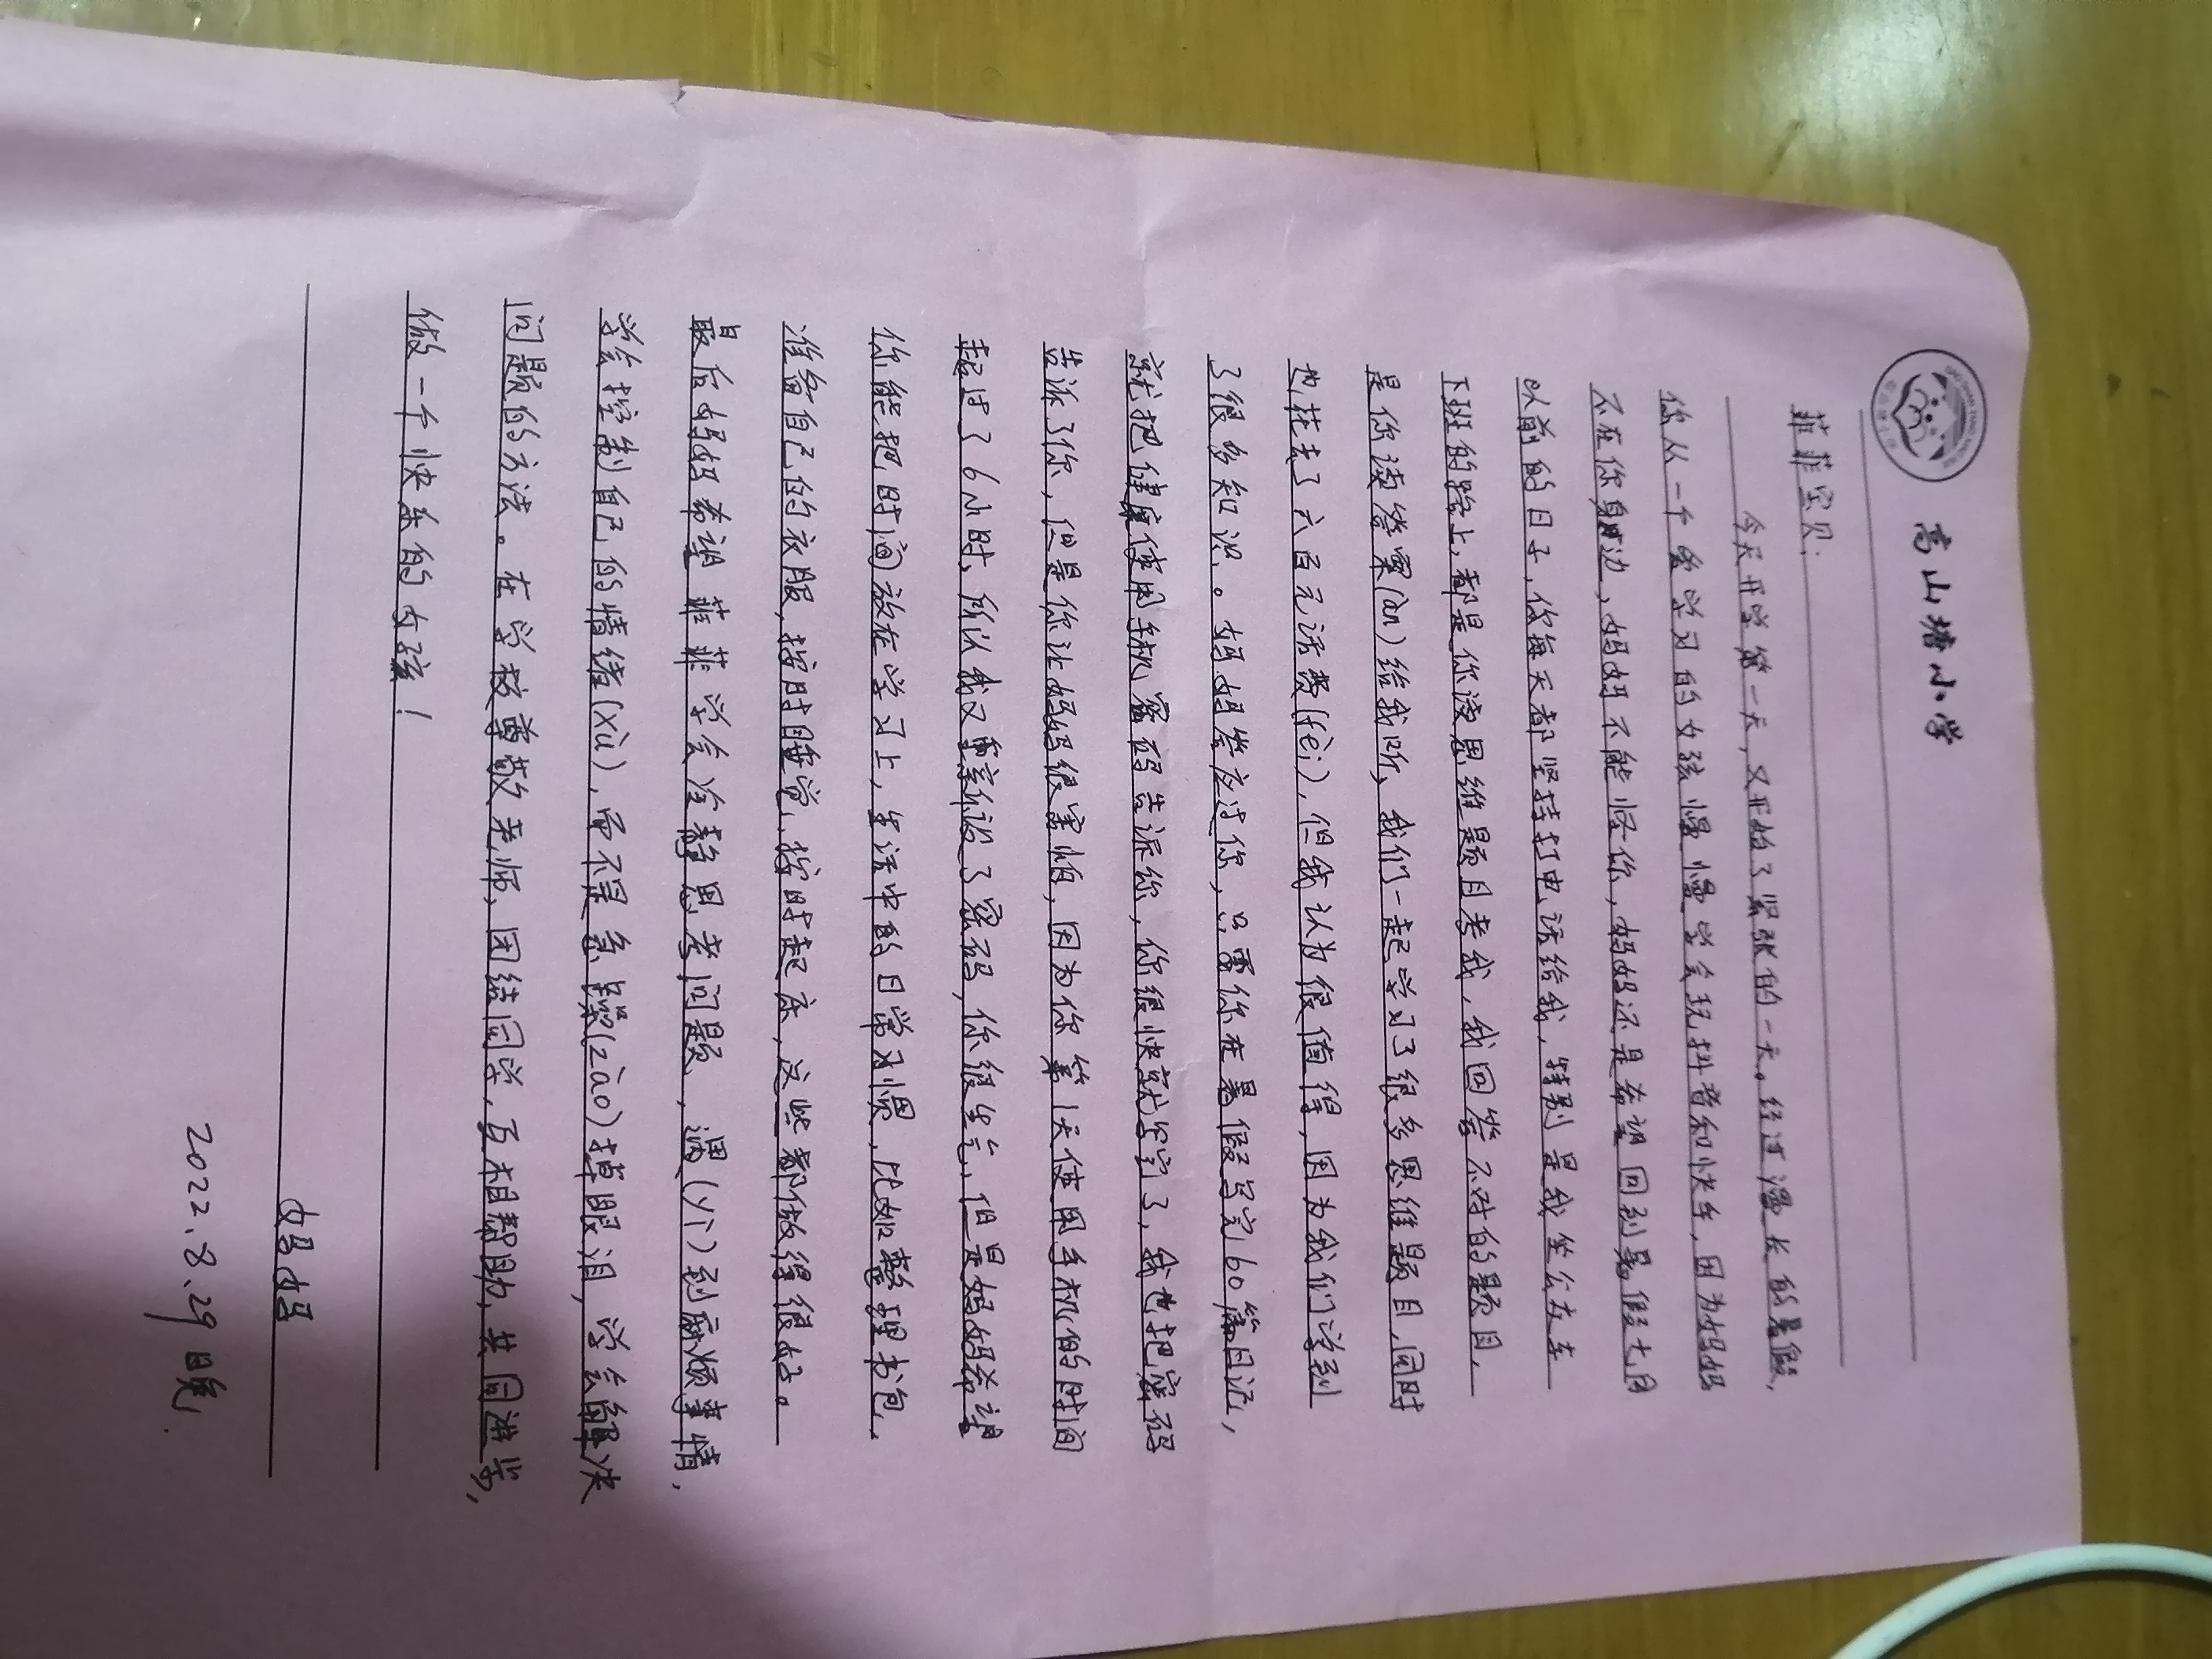 高山塘小学
菲菲宝贝：
今天开学第一天，又开始了紧张的一天。经过漫长的暑假，
你从一个爱学习的女孩慢慢学会玩抖音和快手，因为妈妈
不在你身边，妈妈不能怪你，妈妈还是希望回到暑假七月
以前的日子，你每天都坚持打电话给我，特别是我坐公交车
下班的路上，都是你读思维题目考我，我回答不对的题目，
是你读答案(àn)给我听，我们一起学习了很多思维题目，同时
也花去了六百元话费(fèi)，但我认为很值得，因为我们学到
了很多知识。妈妈答应过你，只要你在暑假写完60篇日记，
就把健康使用手机密码告诉你，你很快就写完了，我也把密码
告诉了你，但是你让妈妈很害怕，因为你第1天使用手机的时间
超过了6小时，所以我又重新设了密码，你很生气，但是妈妈希望
你能把时间放在学习上，生活中的日常习惯，比如整理书包、
准备自己的衣服，按时睡觉，按时起床，这些都做得很好。
最后妈妈希望菲菲学会冷静思考问题，遇(yù)到麻烦事情，
学会控制自己的情绪(xù)，而不是急躁(zào)掉眼泪，学会解决
问题的方法。在学校尊敬老师，团结同学，互相帮助，共同进步，
做一个快乐的女孩！
妈妈
2022.8.29晚